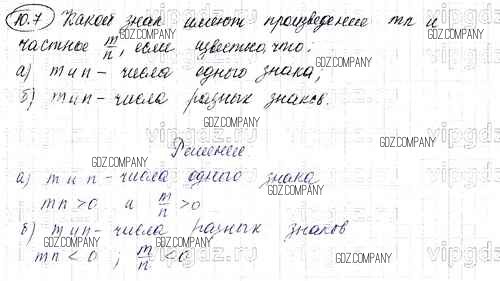 10.7 Какой знак имеют произведение mn и
частное m/n, если известно, что:
а) m и n - числа одного знака;
б) m и n - числа разных знаков.
Решение
а) m и n - числа одного знака
mn > 0 и m/n > 0
б) m и n - числа разных знаков
mn < 0 ; m/n < 0
GDZ.COMPANY
GDZ.COMPANY
GDZ.COMPANY
GDZ.COMPANY
GDZ.COMPANY
GDZ.COMPANY
GDZ.COMPANY
GDZ.COMPANY
GDZ.COMPANY
GDZ.COMPANY
vipgdz.ru
vipgdz.ru
vipgdz.ru
vipgdz.ru